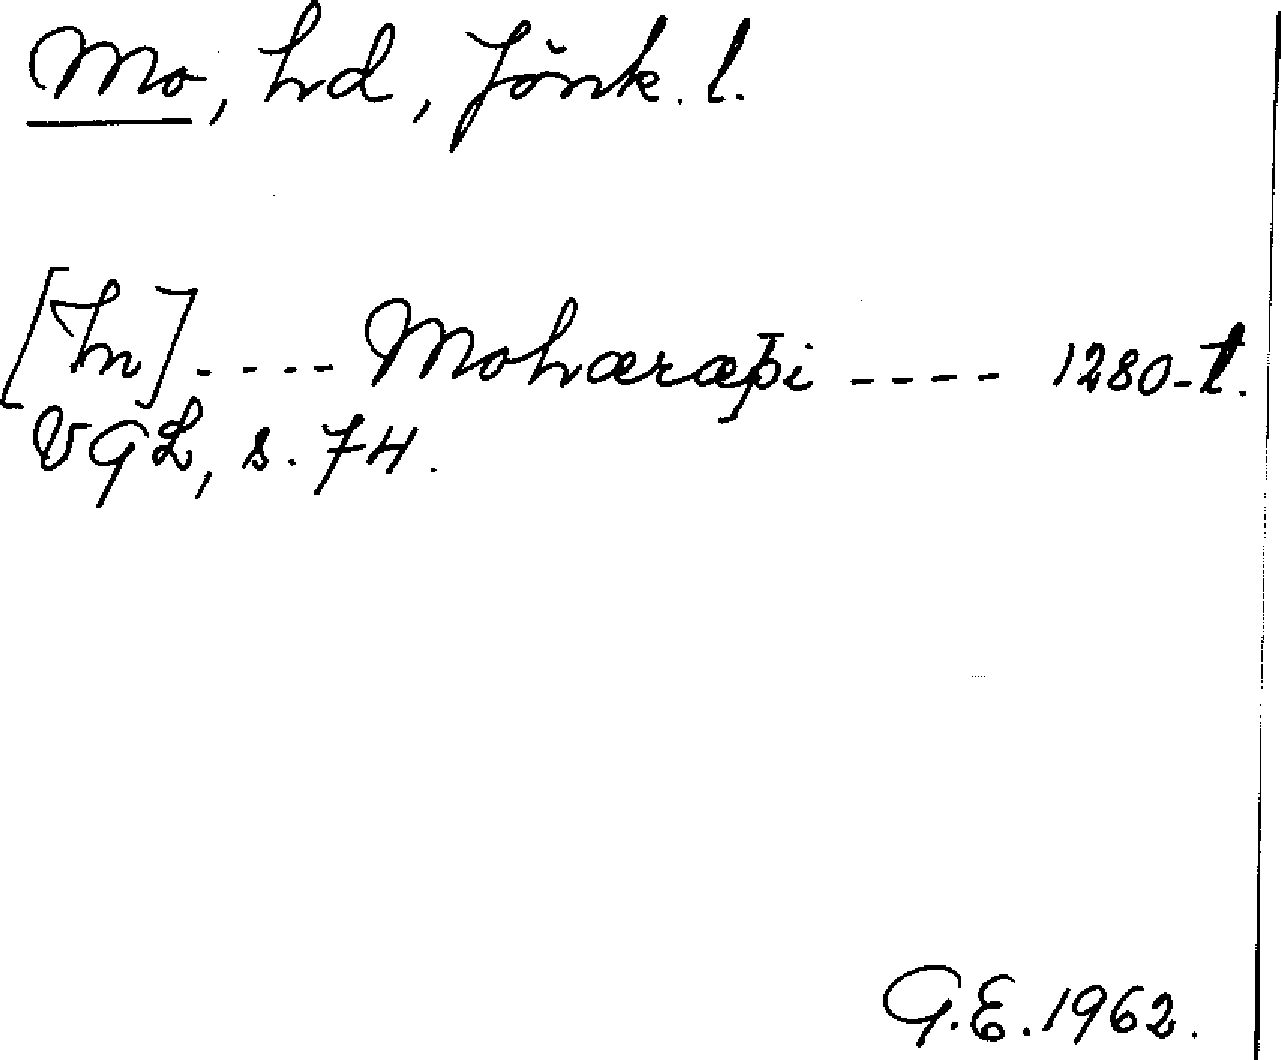 Mo, hd, Jönk. l.
[In] ---- Mohæræþi ---- 1280-t.
VGL, s. 74.
G.E. 1962.